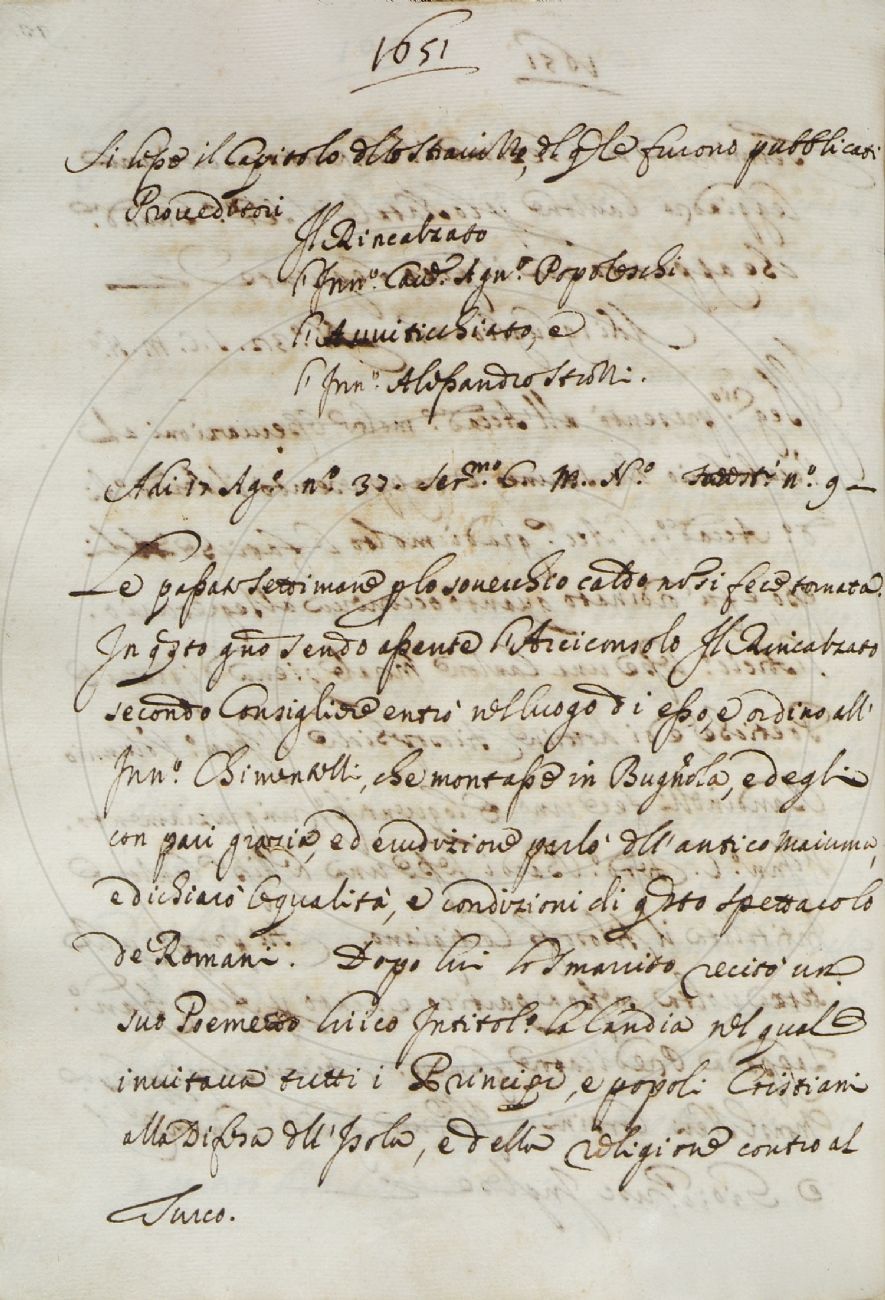 1651
Si lesse il Capitolo dello Stravizzo, del qle furono pubblicati
Proveditori
Il Rincalzato
l'Inn.º Cav.e Agn.º Popoleschi
l'Avviticchiato, e
l'Inn.º Alessandro Strozzi.
Adi 17 Ag.º n.º 37. Ser.mo G. M. N.º n.º 9 —
Le passate settimane p lo soverchio caldo nō si fece tornata.
In qsto gno sendo assente l'Arciconsolo Il Rincalzato
secondo Consigliere entrò nel luogo di esso, e ordino all'
Inn.º Chimentelli, che montasse in Bugnola, ed egli
con pari grazia, ed erudizione parlò dell'antico Maiuma,
e dichiarò le qualità, e condizioni di qsto spettacolo
de' Romani. Dopo lui lo Smarrito recitò un
suo Poemetto lirico Intitol.º la Candia nel quale
invitava tutti i Principi, e popoli Cristiani
alla Difesa dell'Isola, e della religione contro al
Turco.